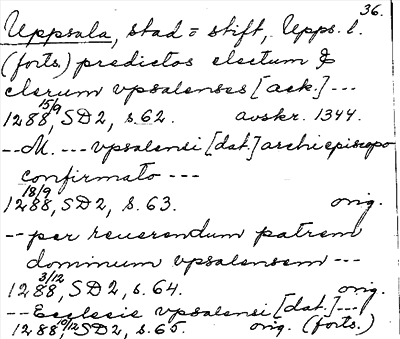 36.
Uppsala, stad = stift, Upps. l.
(forts.) predictos electum &
clerum vpsalenses [ack.] ---
15/9
1288, SD2, s. 62. avskr. 1344.
-- M. --- vpsalensi [dat.] archiepiscopo
confirmato ---
18/9
1288, SD2, s. 63. orig.
-- per reuerendum patrem
dominum vpsalensem ---
3/12
1288, SD2, s. 64. orig.
-- Ecclesie vpsalensi [dat.] ---
1288, SD2, s. 65. orig. (forts.)